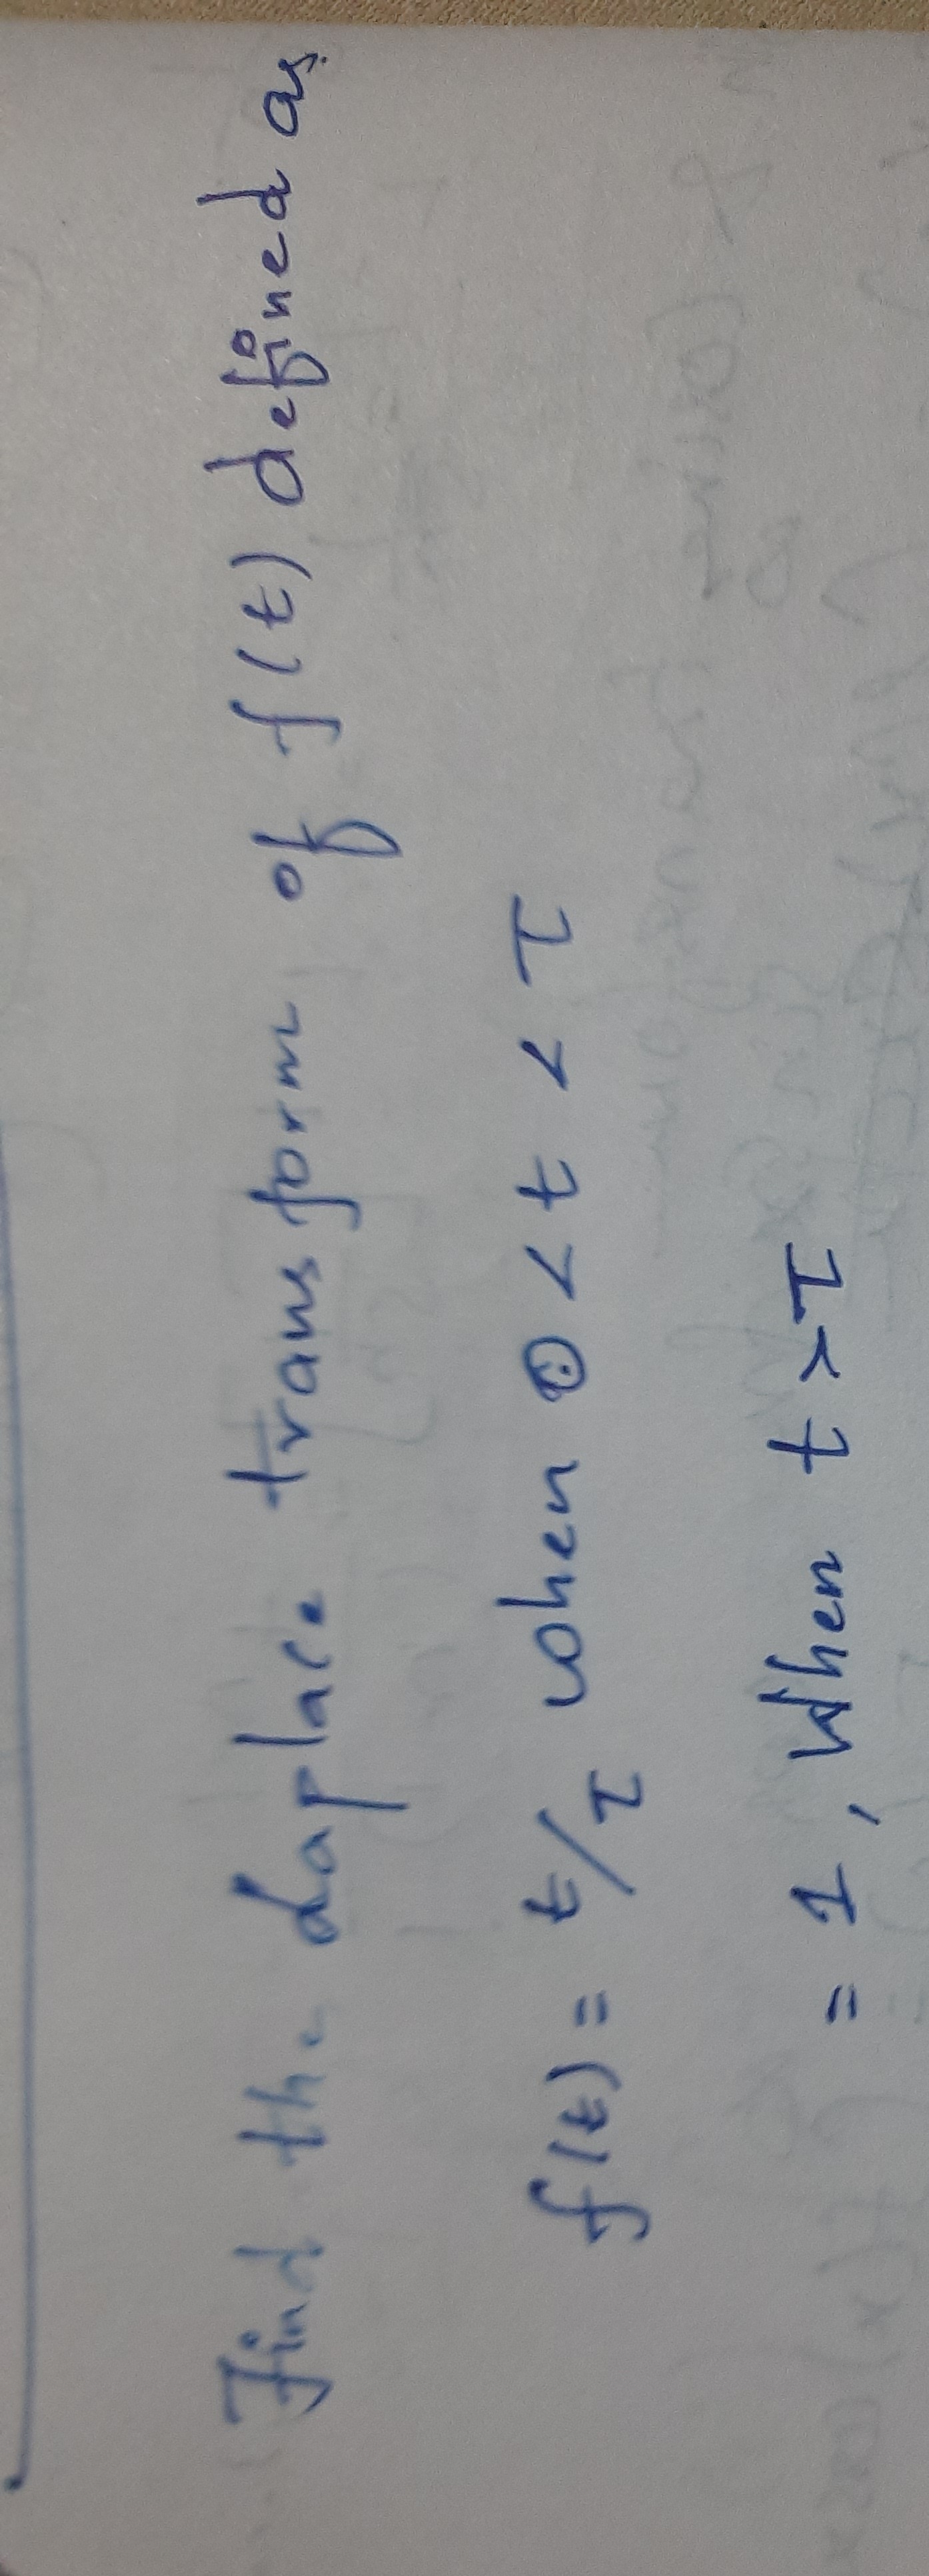 Find the Laplace transform of f(t) defined as
f(t) = t/τ when 0 < t < τ
= 1, when t > τ